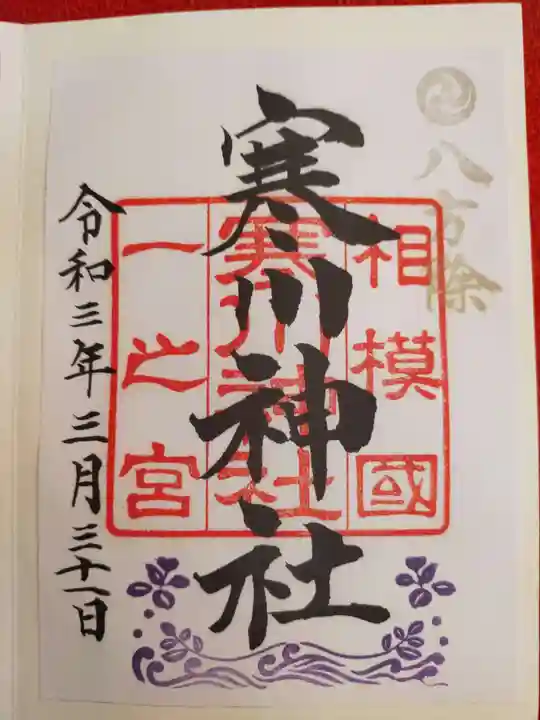 八方除
相模國
寒川神社
一之宮
寒川神社
令和三年三月三十一日